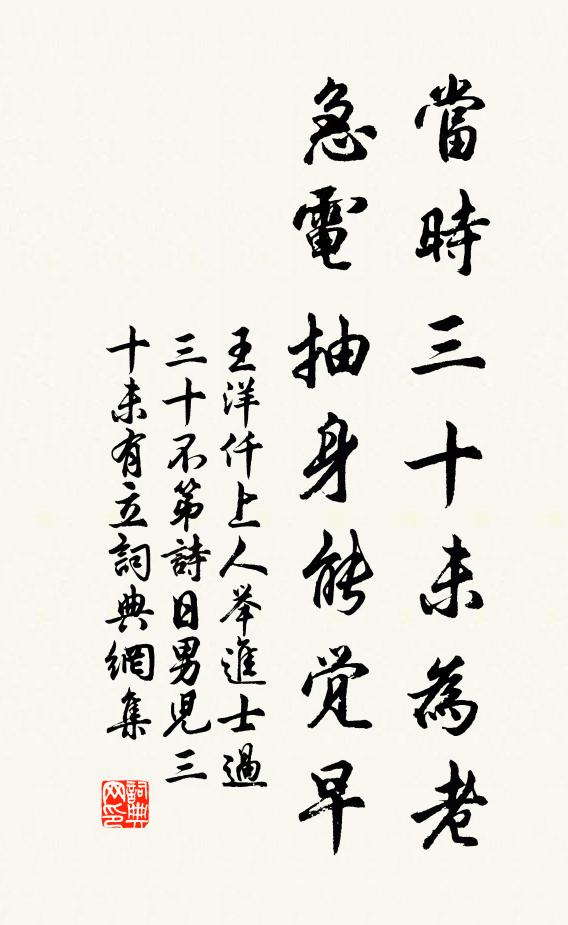 當時三十未為老
急電抽身能覚早
王洋仟上人举進士過
三十不第詩日男児三
十未有立詞典網集
詞典
网印